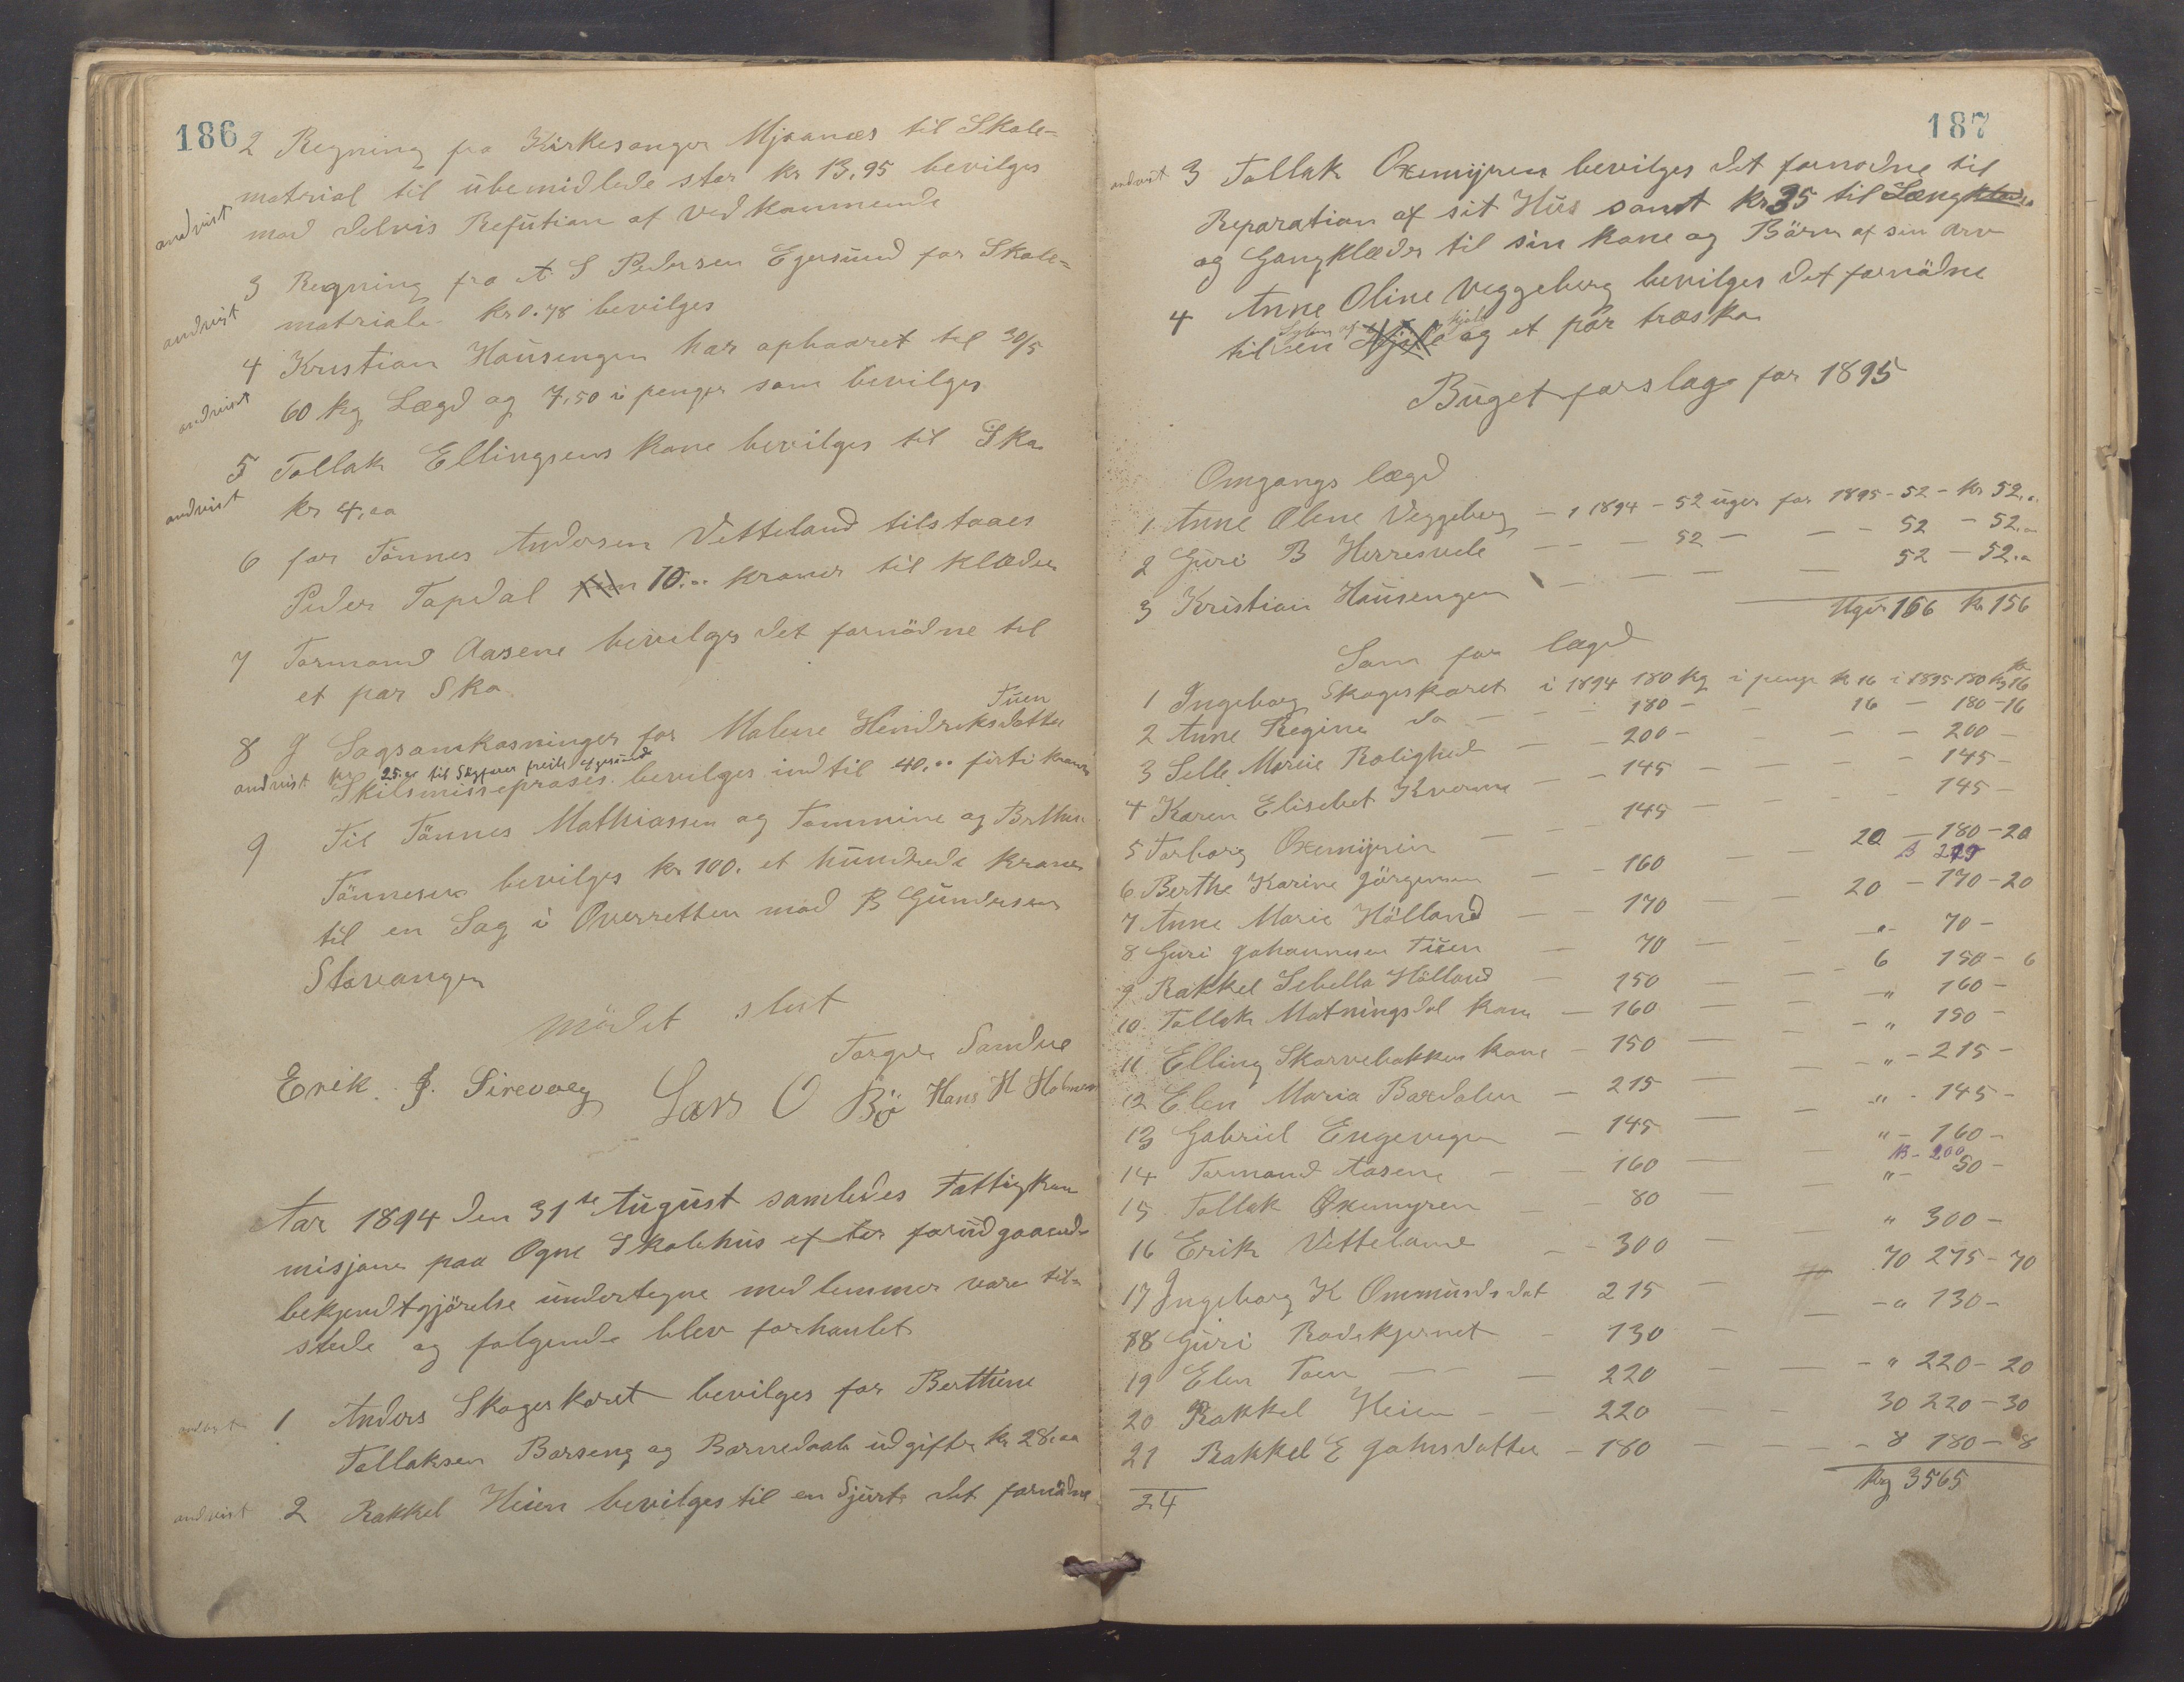 186
2 Regning fra Kirkesanger Mjaanæs til Skole-
matrial til ubemidlede stor kr 13,95 bevilges
andvist
mod delvis Refution af vedkommende
3 Regning fra A. S Pedersen Egersund for Skole-
andvist
matriale kr 0.78 bevilges
4 Kristian Hausengen har opbaaret til 30/5
andvist
60 kg Lægd og 7,50 i penger som bevilges
5 Tollak Ellingsens kone bevilges til Sko
andvist
kr 4,00
6 for Tönnes Andersen Vetteland tilstaaes
Peder Tapdal 10.00 kroner til klæder
7 Tormand Aasene bevilges det fornödne til
et par Sko
8 J Sagsomkosninger for Malene Hendriksdatter Tuen
andvist kr 25.00 til Sagförer
Skilsmisseproses. bevilges indtil 40.00 firti kroner
9 Til Tönnes Mathiassen og Tommine og Berthe
Tönnesen bevilges kr 100. et hundrede kroner
til en Sag i Overretten mod B Gundersen
Stavanger
mödet slut
Torger Sandve
Erik. J. Sirevaag Lars O Bö Hans H Holmen
Aar 1894 den 31te August samledes Fattigkom
misjonen paa Ogne Skolehus efter forudgaaende
bekjendtgjörelse undertegne medlemmer vare til-
stede og folgende blev forhanlet
1 Anders Skogeskaret bevilges for Berthine
Tollaksen Barseng og Barnedaab udgifter kr 28,00
andvist 2 Rakkel Heien bevilges til en Sjurt det fornödne
187
andvist 3 Tollak Oxemyren bevilges det fornodne til
Reparation af sit Hus samt kr 35 til Sængklæder
og Gangklæder til sin kone og Börn af sin Arv
4 Anne Oline Veggeberg bevilges det fornödne
til en kjole og et par træsko
Buget forslag for 1895
Omgangs lægd
1 Anne Oline Veggeberg - i 1894 - 52 uger for 1895 - 52 - kr 52.
2 Guri B Herresvele - - - 52 - - - 52 - 52.
3 Kristian Hausengen - - - - 52 - 52.
Uger 156 kr 156
Som for lægd
1 Ingeborg Skogeskaret i 1894 180 kg i penge kr 16 i 1895 180 kg kr 16
2 Anne Regine do - - 180 - - 16 - 180 - 16
3 Selle Marie Rolighed - - 200 - - - 200 -
4 Karen Elisebet Kverme - - 145 - - - 145 -
5 Torborg Oxemyren - - 145 - - - 145 -
6 Berthe Karine Jörgensen - - 160 - - 20 - 180 - 20
7 Anne Marie Hölland - - 170 - - 20 - 170 - 20
8 Guri Johannesen Tuen - 70 - - " 70 -
9 Rakkel Sebella Hölland - 150 - - 6 150 - 6
10 Tollak Matningsdal kone - 160 - - " 160 -
11 Elling Skarvebakken kone - 150 - - " 150 -
12 Elen Maria Bardalen - 215 - - " - 215 -
13 Gabriel Engevigen - 145 - - " - 145 -
14 Tormand Aasene - - 160 - - " - 160 -
15 Tollak Oxemyren - - 80 - - " - 50 -
16 Erik Vetteland - - 300 - - " 300 -
17 Ingeborg K Ommundsdat 215 - 70 275 - 70
18 Guri Rodekjernet - 130 - - " 130 -
19 Elen Toen - - - 220 - - - " 220 - 20
20 Rakkel Heien - - 220 - - 30 220 - 30
21 Rakkel E Johnsdatter - 180 - - - 8 180 - 8
24
kg 3565